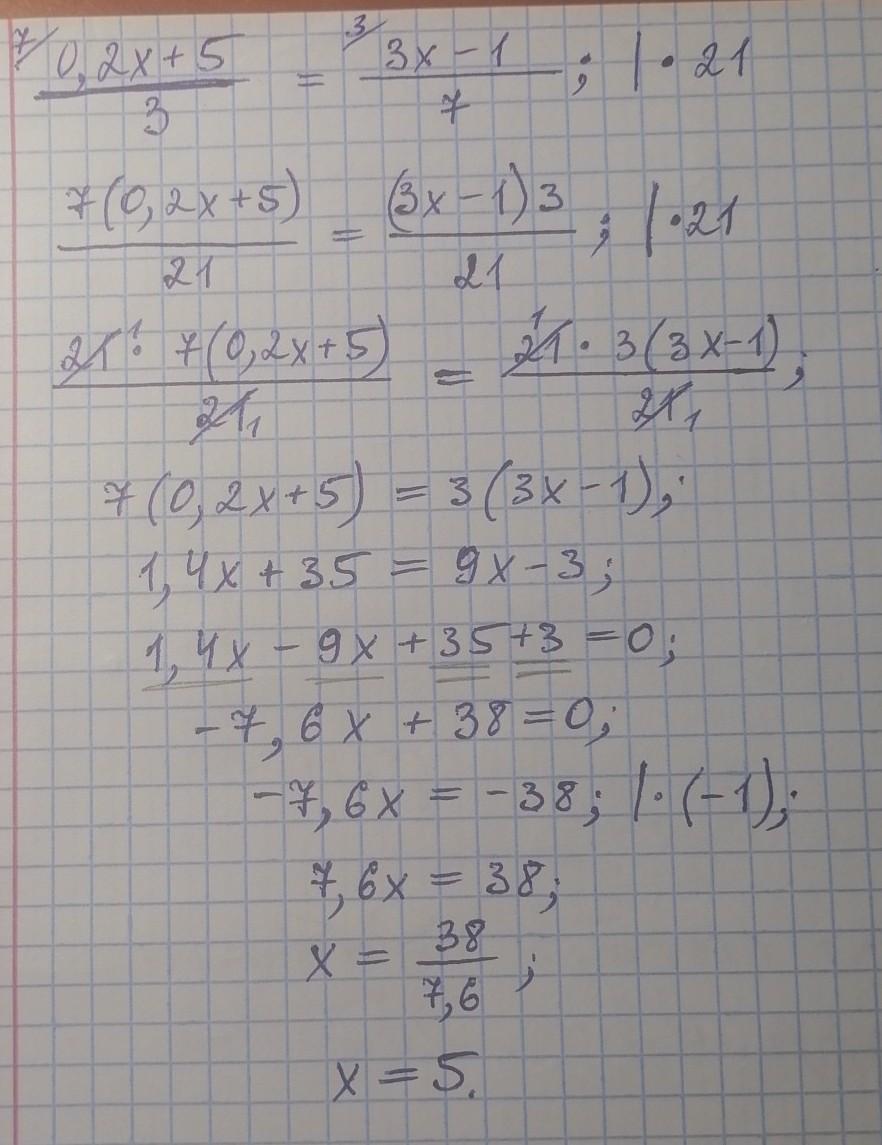 7/ (0,2x+5)/3 = 3/ (3x-1)/7; |·21
7(0,2x+5)/21 = (3x-1)3/21; |·21
21¹·7(0,2x+5)/21₁ = 21¹·3(3x-1)/21₁;
7(0,2x+5) = 3(3x-1);
1,4x+35 = 9x-3;
1,4x-9x+35+3=0;
-7,6x+38=0;
-7,6x = -38; |·(-1);
7,6x = 38;
x = 38/7,6;
x = 5.